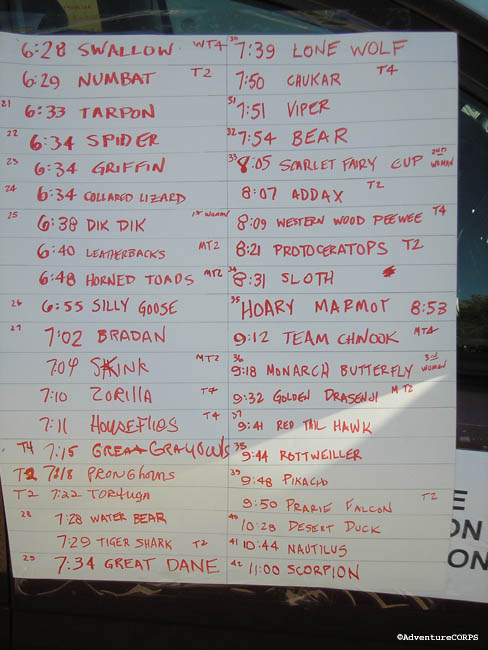 6:28 SWALLOW WT4
6:29 NUMBAT T2
21 6:33 TARPON
22 6:34 SPIDER
23 6:34 GRIFFIN
24 6:34 COLLARED LIZARD
25 6:38 DIK DIK 1st WOMAN
6:40 LEATHERBACKS MT2
6:48 HORNED TOADS MT2
26 6:55 SILLY GOOSE
27 7:02 BRADAN
7:04 SKINK MT2
7:10 ZORILLA T4
7:11 HOUSEFLIES T4
T4 7:15 GREAT GRAY OWLS
T2 7:18 PRONGHORNS
T2 7:22 TORTUGA
28 7:28 WATER BEAR
7:29 TIGER SHARK T2
29 7:34 GREAT DANE
30 7:39 LONE WOLF
7:50 CHUKAR T4
31 7:51 VIPER
32 7:54 BEAR
33 8:05 SCARLET FAIRY CUP 2ND WOMAN
8:07 ADDAX T2
8:09 WESTERN WOOD PEEWEE T4
8:21 PROTOCERATOPS T2
34 8:31 SLOTH
35 HOARY MARMOT 8:53
9:12 TEAM CHINOOK MT4
36 9:18 MONARCH BUTTERFLY 3rd WOMAN
9:32 GOLDEN DRASENJI MT2
37 9:41 RED TAIL HAWK
38 9:44 ROTTWEILLER
39 9:48 PIKACHU
9:50 PRARIE FALCON T2
40 10:28 DESERT DUCK
41 10:44 NAUTILUS
42 11:00 SCORPION
E
ON
ON
©AdventureCORPS